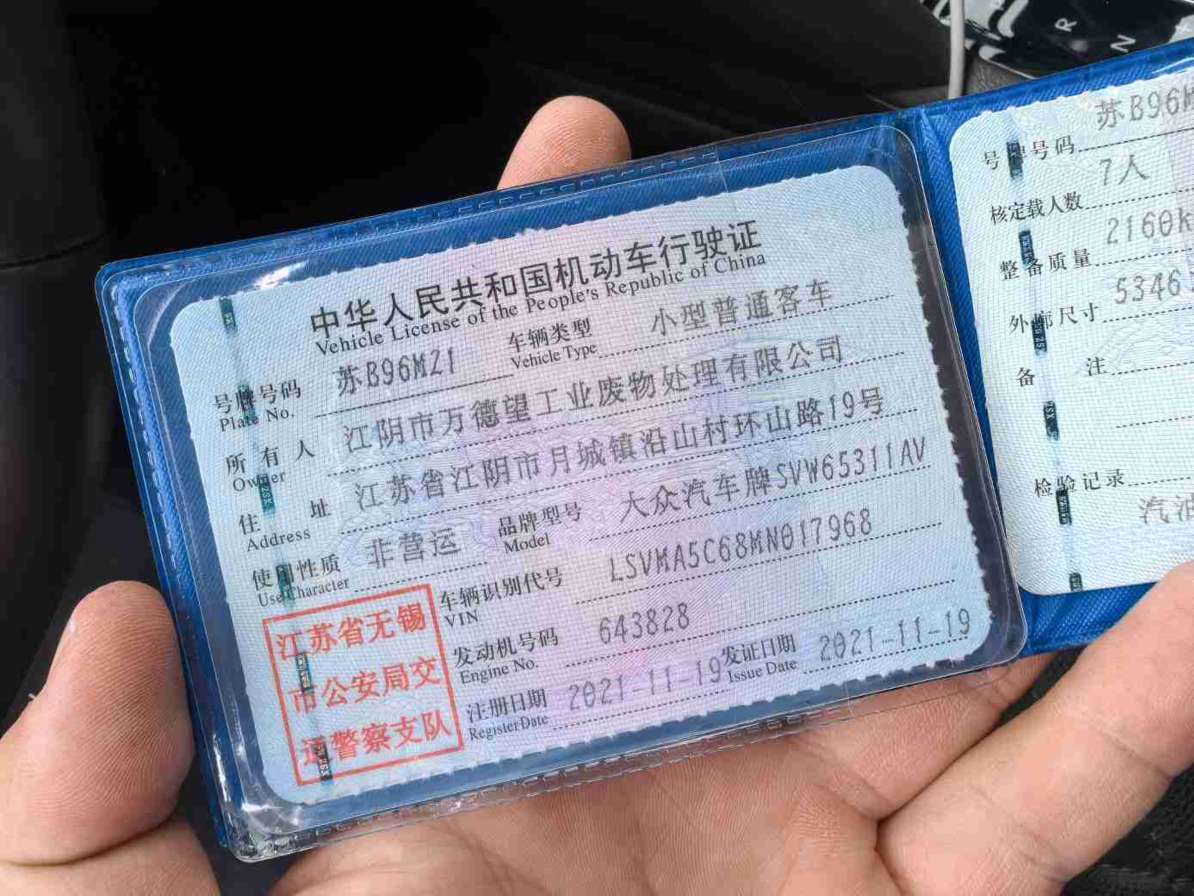 中华人民共和国机动车行驶证
Vehicle License of the People's Republic of China
号牌号码 苏B96M21 车辆类型 小型普通客车
Plate No. Vehicle Type
所有人 江阴市万德望工业废物处理有限公司
Owner
住址 江苏省江阴市月城镇沿山村环山路19号
Address
使用性质 非营运 品牌型号 大众汽车牌SVW65311AV
Use Character Model
车辆识别代号 LSVMA5C68MN017968
VIN
发动机号码 643828
Engine No.
注册日期 2021-11-19 发证日期 2021-11-19
Register Date Issue Date
江苏省无锡
市公安局交
通警察支队
号牌号码 苏B96M
核定载人数 7人
整备质量 2160k
外廓尺寸 5346
备注
检验记录
汽油